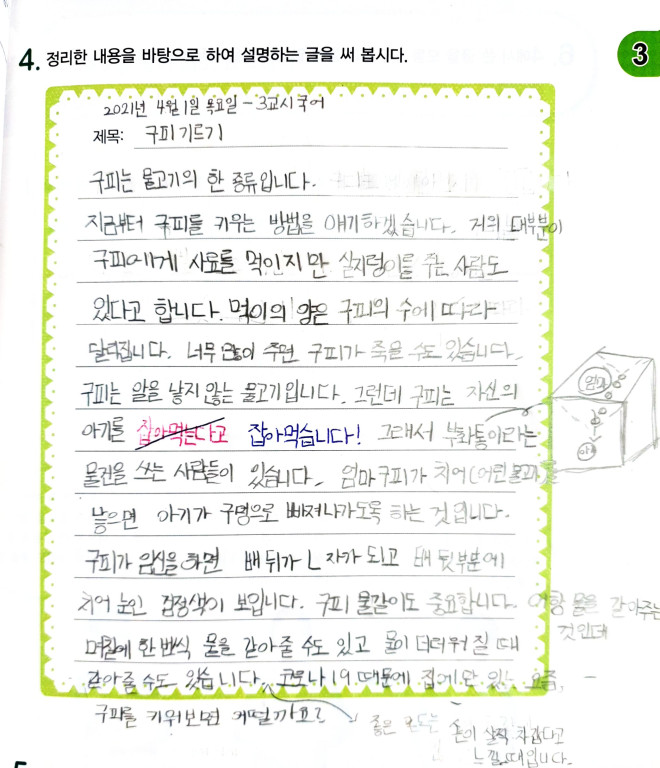 4. 정리한 내용을 바탕으로 하여 설명하는 글을 써 봅시다.
3
2021년 4월 1일 목요일 - 3교시 국어
제목: 구피 기르기
구피는 물고기의 한 종류입니다.
지금부터 구피를 키우는 방법을 얘기하겠습니다. 거의 대부분이
구피에게 사료를 먹이지만 실지렁이를 주는 사람도
있다고 합니다. 먹이의 양은 구피의 수에 따라
달라집니다. 너무 많이 주면 구피가 죽을 수도 있습니다.
구피는 알을 낳지 않는 물고기입니다. 그런데 구피는 자신의
아기를 잡아먹는다고 잡아먹습니다! 그래서 부화통이라는
물건을 쓰는 사람들이 있습니다. 엄마 구피가 치어(어린 물고기)를
낳으면 아기가 구멍으로 빠져나가도록 하는 것입니다.
구피가 임신을 하면 배 뒤가 L자가 되고 배 뒷부분에
치어 눈인 검정색이 보입니다. 구피 물갈이도 중요합니다. 어항 물을 갈아주는
것인데
며칠에 한 번씩 물을 갈아줄 수도 있고 물이 더러워 질 때
갈아줄 수도 있습니다. 코로나19 때문에 집에만 있는 요즘,
구피를 키워보면 어떨까요?
좋은 온도는 손이 살짝 차갑다고
느낄 때입니다.
엄마
아기